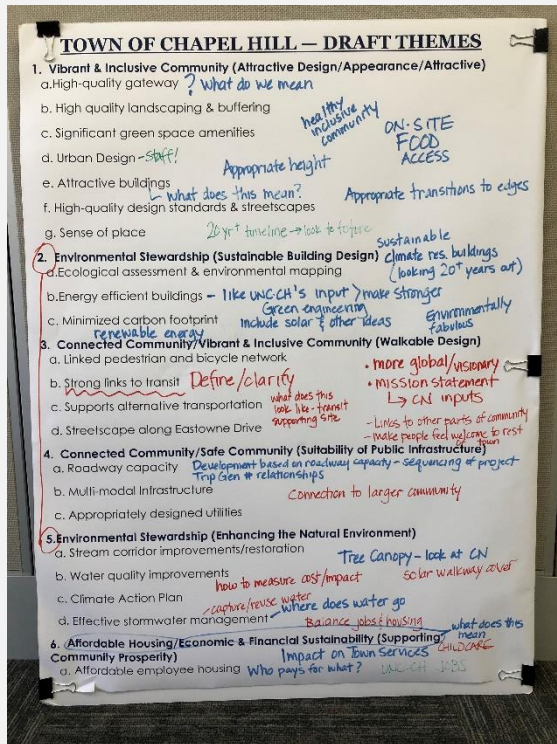 TOWN OF CHAPEL HILL — DRAFT THEMES
1. Vibrant & Inclusive Community (Attractive Design/Appearance/Attractive)
a.High-quality gateway ? What do we mean
b. High quality landscaping & buffering
healthy inclusive community
c. Significant green space amenities
ON-SITE
FOOD
ACCESS
d. Urban Design - Staff!
Appropriate height
e. Attractive buildings
What does this mean?
Appropriate transitions to edges
f. High-quality design standards & streetscapes
g. Sense of place
20 yr+ timeline → look to future
sustainable
2. Environmental Stewardship (Sustainable Building Design) climate res. buildings
(looking 20+ years out)
a.Ecological assessment & environmental mapping
b.Energy efficient buildings - like UNC-CH's input > make stronger
Green engineering
c. Minimized carbon footprint
include solar & other ideas
Environmentally
fabulous
renewable energy
3. Connected Community/Vibrant & Inclusive Community (Walkable Design)
a. Linked pedestrian and bicycle network
• more global/visionary
b. Strong links to transit Define/clarify
• mission statement
↳ CN inputs
c. Supports alternative transportation
what does this
look like - transit
supporting site
- Links to other parts of community
d. Streetscape along Eastowne Drive
- make people feel welcome to rest
town
4. Connected Community/Safe Community (Suitability of Public Infrastructure)
a. Roadway capacity Development based on roadway capacity - sequencing of project
Trip Gen # relationships
b. Multi-modal Infrastructure
Connection to larger community
c. Appropriately designed utilities
5.Environmental Stewardship (Enhancing the Natural Environment)
a. Stream corridor improvements/restoration
Tree Canopy - look at CN
b. Water quality improvements
solar walkway cover
how to measure cost/impact
c. Climate Action Plan
capture/reuse water
d. Effective stormwater management where does water go
Balance jobs & housing
what does this
mean
6. Affordable Housing/Economic & Financial Sustainability (Supporting
CHILDCARE
Community Prosperity)
Impact on Town Services
a. Affordable employee housing Who pays for what? UNC-CH JOBS